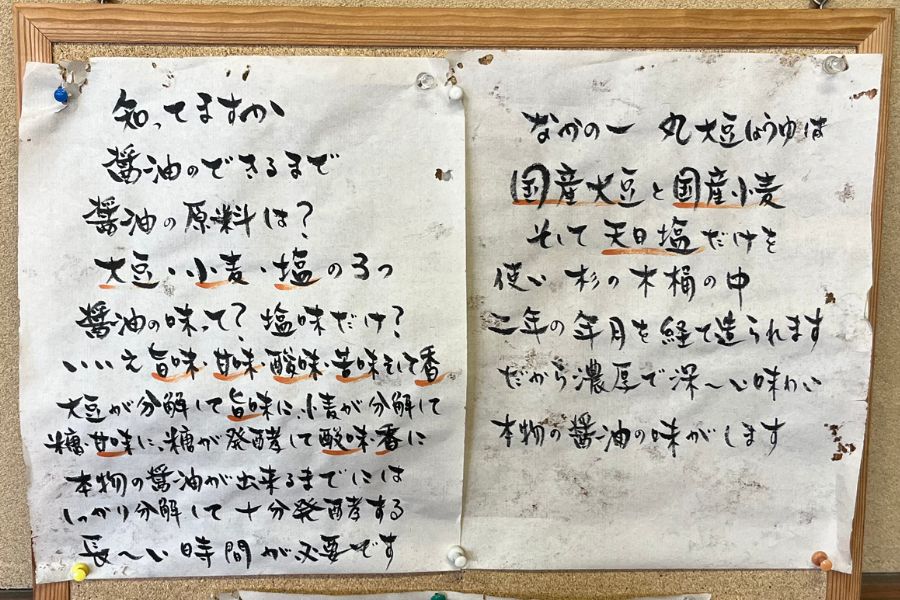 知ってますか
醤油のできるまで
醤油の原料は?
大豆・小麦・塩の3つ
醤油の味って?塩味だけ?
いいえ旨味・甘味・酸味・苦味そして香
大豆が分解して旨味に、小麦が分解して
糖・甘味に、糖が発酵して酸味・香に
本物の醤油が出来るまでには
しっかり分解して十分発酵する
長〜い時間が必要です
なかの一 丸大豆しょうゆは
国産大豆と国産小麦
そして天日塩だけを
使い杉の木桶の中
二年の年月を経て造られます
だから濃厚で深〜い味わい
本物の醤油の味がします